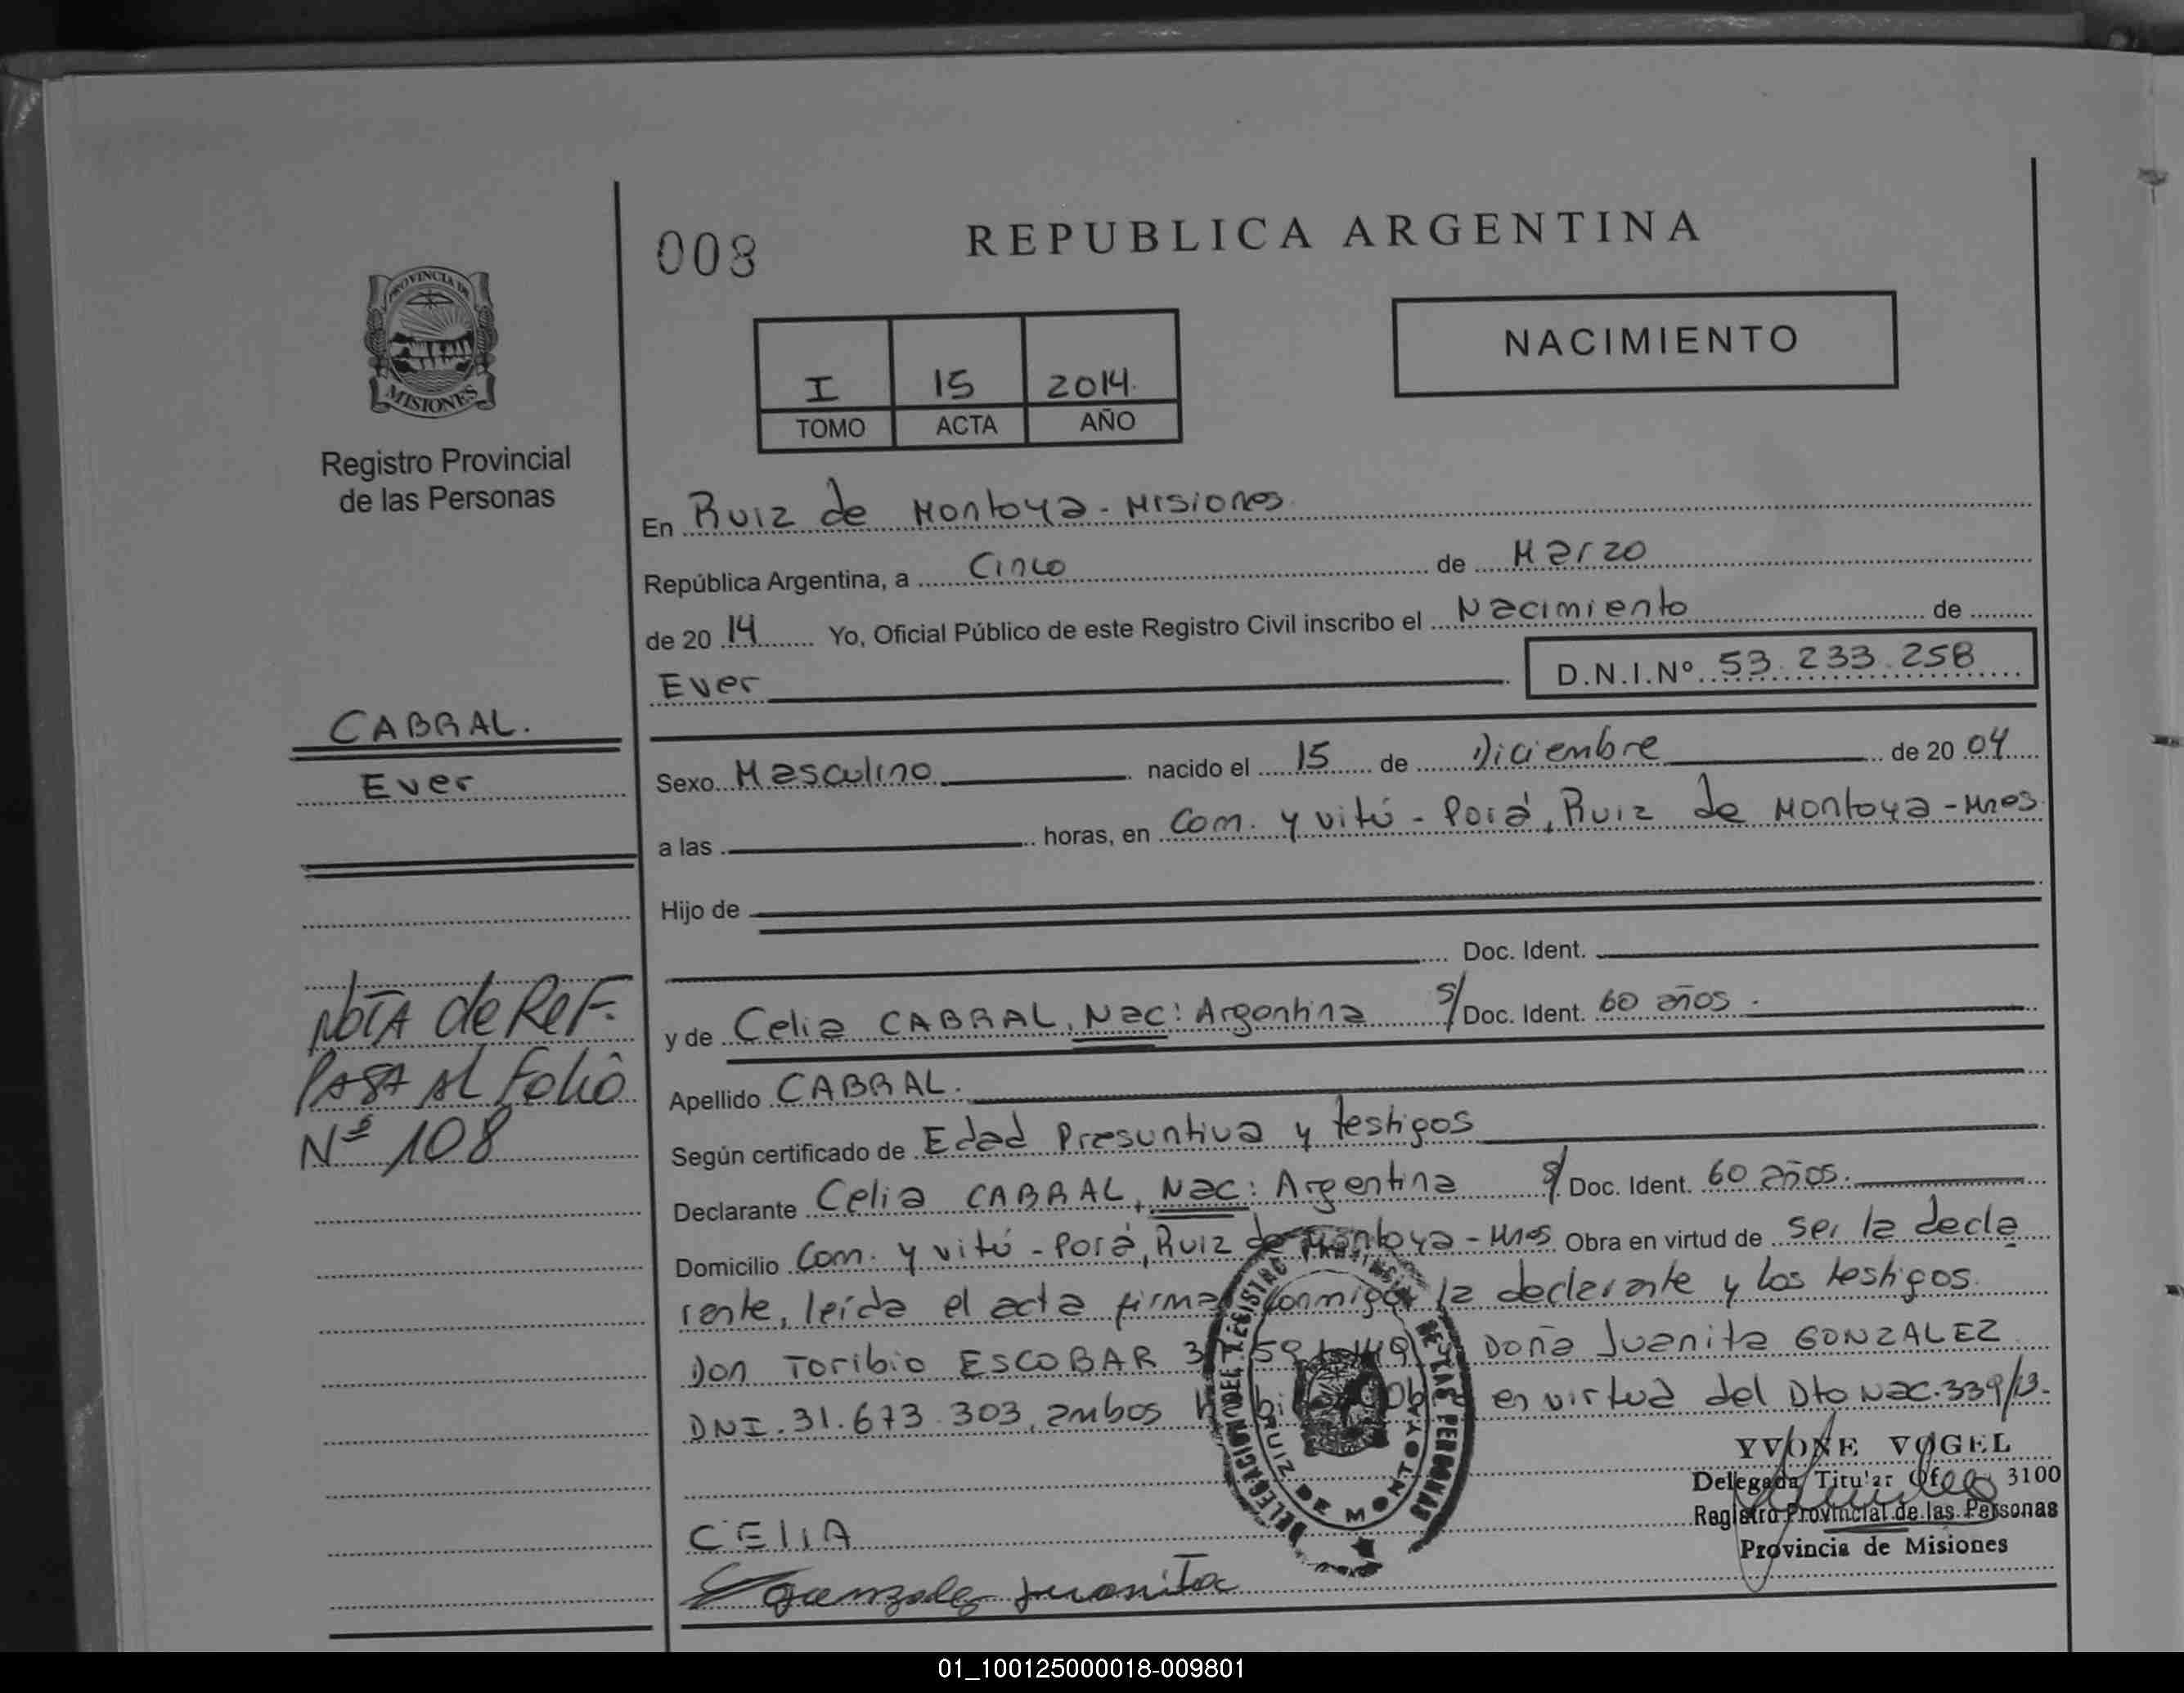 008
REPUBLICA ARGENTINA
PROVINCIA DE
MISIONES
I 15 2014.
TOMO ACTA AÑO
NACIMIENTO
Registro Provincial
de las Personas
En Ruiz de Montoya - Misiones
República Argentina, a Cinco de Marzo
de 20 14 Yo, Oficial Público de este Registro Civil inscribo el Nacimiento de
Ever D.N.I.Nº 53.233.258
CABRAL.
Ever
Sexo Masculino nacido el 15 de Diciembre de 20 04
a las horas, en Com. y vitú - Porá, Ruiz de Montoya - Mnes
Hijo de
Doc. Ident.
y de Celia CABRAL, Nac: Argentina s/ Doc. Ident. 60 años.
Apellido CABRAL.
Según certificado de Edad Presuntiva y testigos
Declarante Celia CABRAL, Nac: Argentina s/ Doc. Ident. 60 años.
Domicilio Com. y vitú - Porá, Ruiz de Montoya - Mnes Obra en virtud de ser la decla
rante, leída el acta firman conmigo la declarante y los testigos
Don Toribio ESCOBAR Doña Juanita GONZALEZ
DNI. 31.673.303, ambos en virtud del Dto Nac. 339/13.
NOTA de REF.
PASA AL Folio
Nº 108
DELEGACION DEL REGISTRO DE LAS PERSONAS
RUIZ DE MONTOYA
YVONE VOGEL
Delegada Titular 3100
Registro Provincial de las Personas
Provincia de Misiones
CEliA
Gonzalez Juanita
01_100125000018-009801